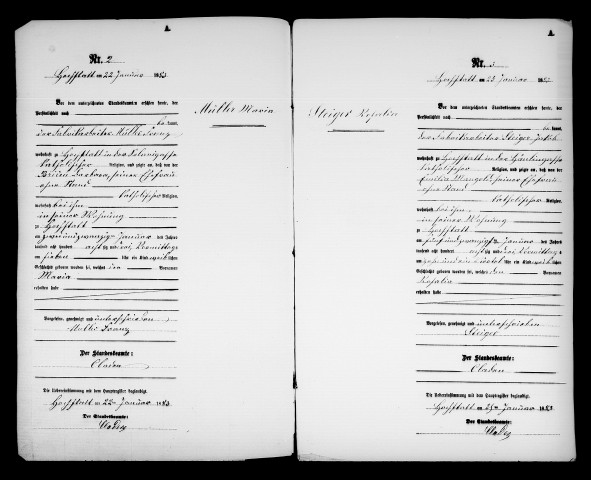 A.
Nr. 2
Hochstatt am 22 Januar 1883
Vor dem unterzeichneten Standesbeamten erschien heute, der
Persönlichkeit nach
be kannt,
der Fabrikarbeiter Müller Franz
wohnhaft zu Hochstatt in der
katholischer Religion, und zeigte an, daß von der
Barbara, seiner Ehefrau
ohne Stand
katholischer Religion,
wohnhaft bei ihm
in seiner Wohnung
zu Hochstatt
am zweiundzwanzigsten Januar des Jahres
tausend acht hundert achtzig und drei Vormittags
um sieben Uhr ein Kind weiblichen
Geschlechts geboren worden sei, welches den Vornamen
Maria
erhalten habe
Vorgelesen, genehmigt und unterschrieben
Müller Franz
Der Standesbeamte:
Die Uebereinstimmung mit dem Hauptregister beglaubigt.
Hochstatt am 22ten Januar 1883
Der Standesbeamte:
Müller Maria
A.
Nr. 3
Hochstatt am 25 Januar 1883
Vor dem unterzeichneten Standesbeamten erschien heute, der
Persönlichkeit nach
be kannt,
der Fabrikarbeiter Steiger Jakob
wohnhaft zu Hochstatt in der
katholischer Religion, und zeigte an, daß von der
Emilia seiner Ehefrau
ohne Stand
katholischer Religion,
wohnhaft bei ihm
in seiner Wohnung
zu Hochstatt
am fünfundzwanzigsten Januar des Jahres
tausend acht hundert achtzig und drei Vormittags
um Uhr ein Kind weiblichen
Geschlechts geboren worden sei, welches den Vornamen
Rosalia
erhalten habe
Vorgelesen, genehmigt und unterschrieben
Steiger
Der Standesbeamte:
Die Uebereinstimmung mit dem Hauptregister beglaubigt.
Hochstatt am 25ten Januar 1883
Der Standesbeamte:
Steiger Rosalia